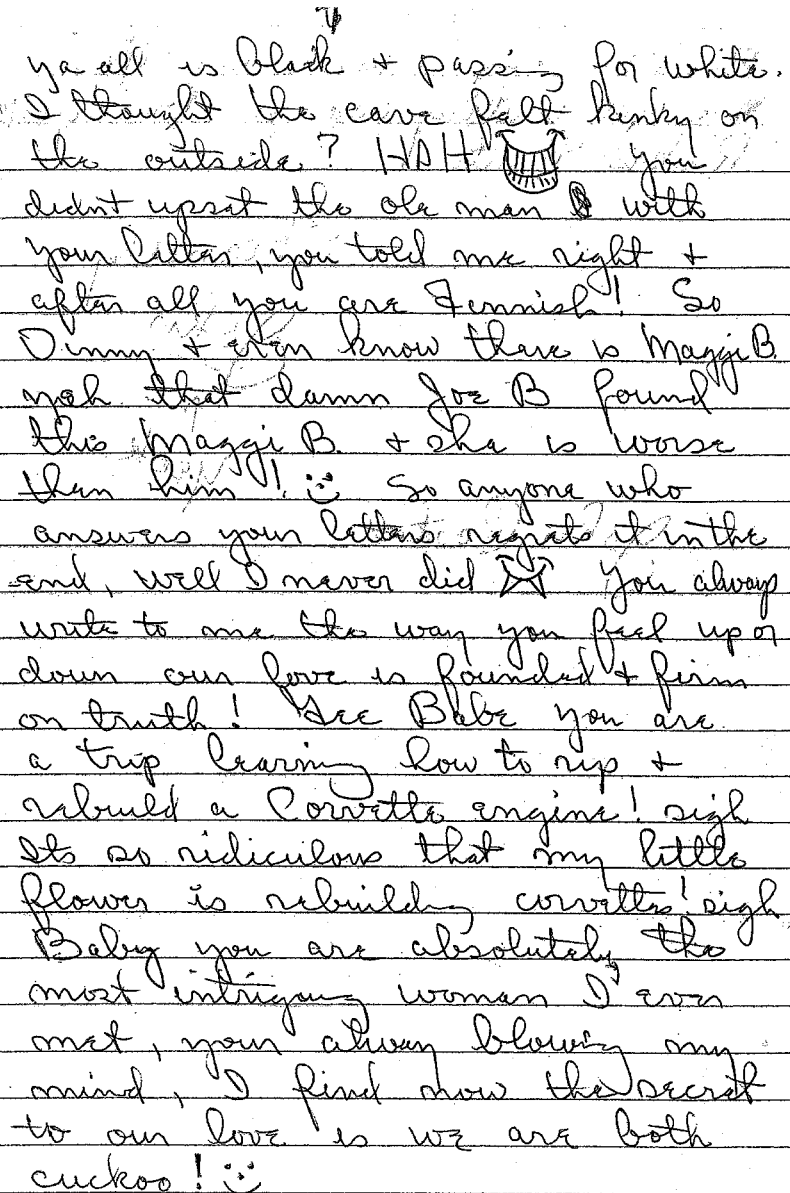 7
ya all is black + passing for white.
I thought the cave felt kinky on
the outside? HAH you
didn't upset the ole man with
your letter, you told me right +
after all you are Finnish! So
Dinny + even know there is Maggi B.
yeah that damn Joe B found
this Maggi B. + she is worse
then him! So anyone who
answers your letters regrets it in the
end, well I never did You always
write to me the way you feel up or
down our love is founded + firm
on truth! Gee Babe you are
a trip learning how to rip +
rebuild a Corvette engine! sigh
Its so ridiculous that my little
flower is rebuilding corvettes! sigh
Baby you are absolutely the
most intriguing woman I ever
met, your always blowing my
mind, I find now the secret
to our love is we are both
cuckoo!